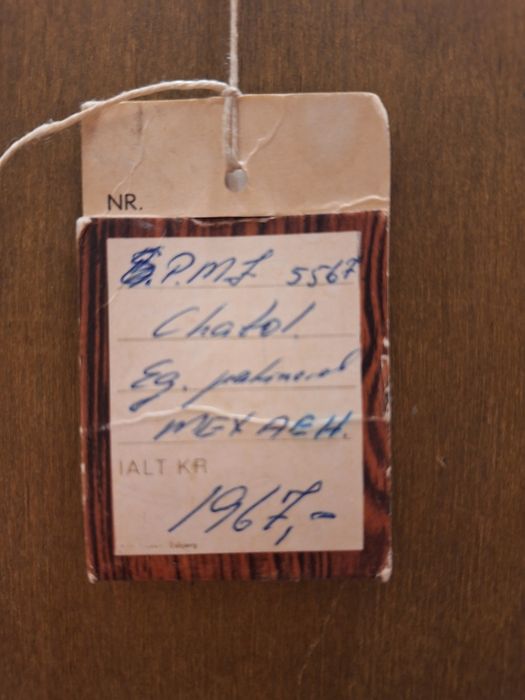 NR.
P.M.F 5567
Chatol.
Eg. patineret
MEX AEH.
IALT KR
1967,-
Esbjerg